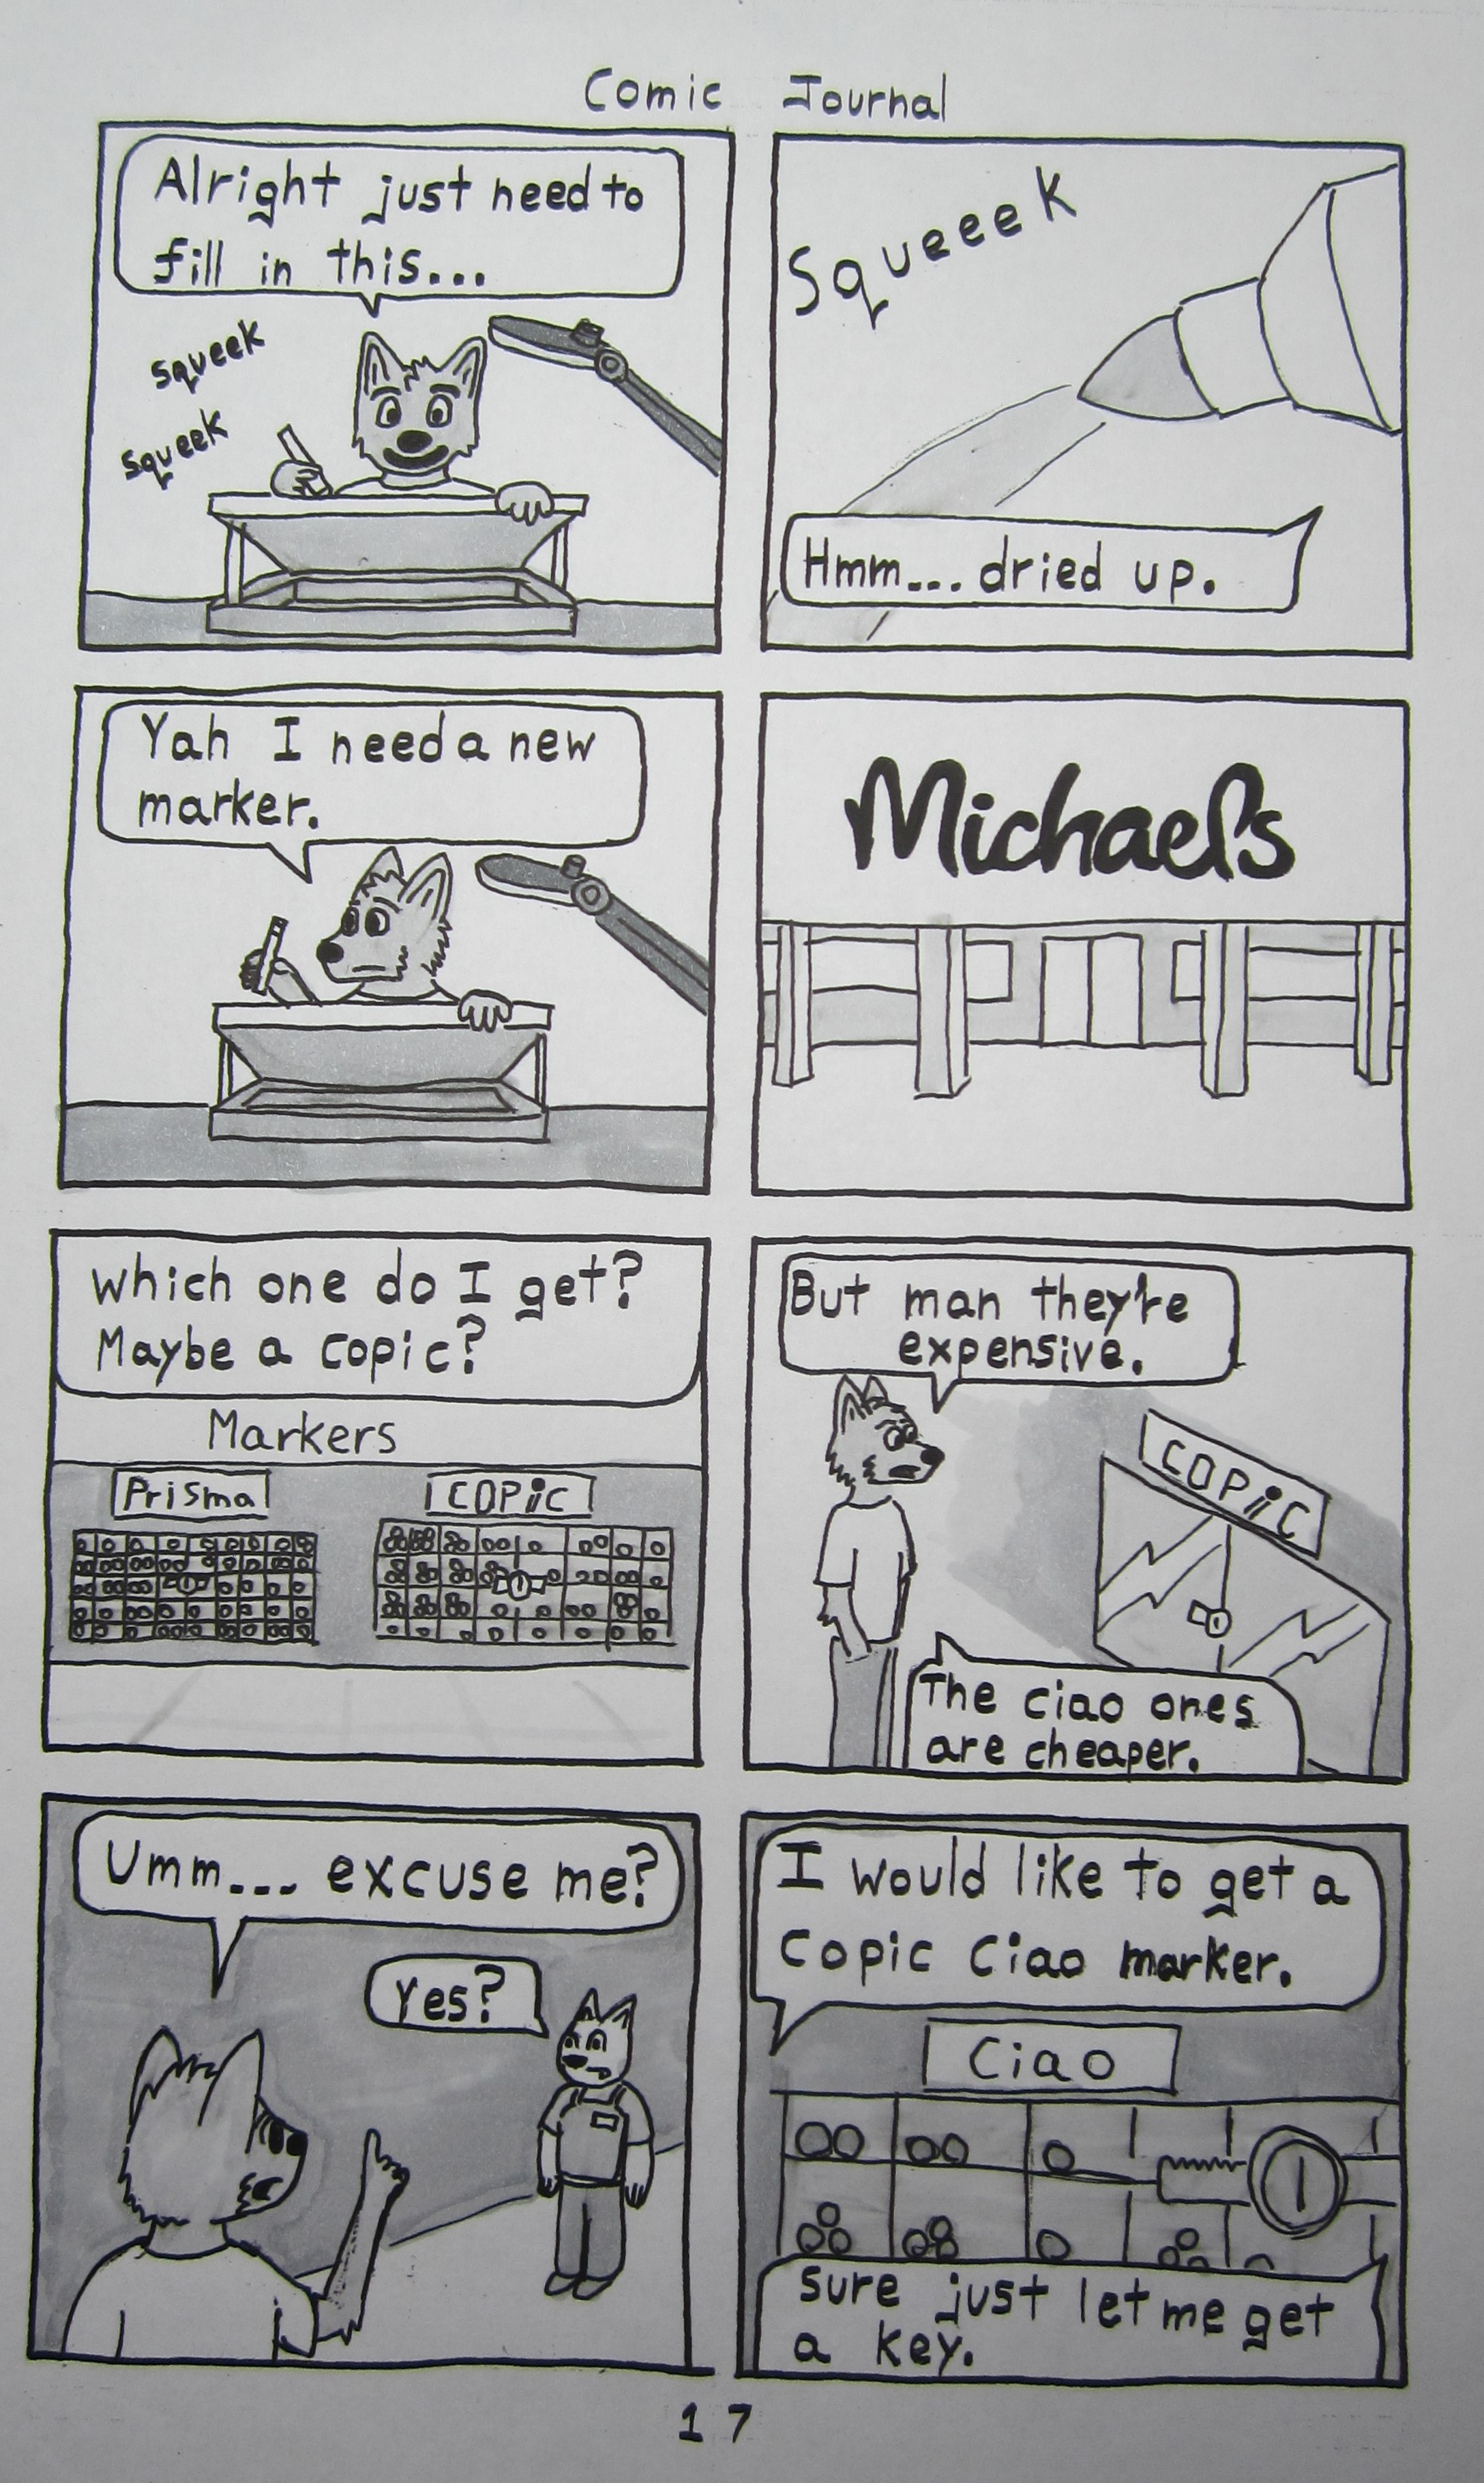 Comic Journal
Alright just need to
fill in this...
squeek
squeek
Squeeek
Hmm... dried up.
Yah I need a new
marker.
Michaels
Which one do I get?
Maybe a copic?
Markers
Prisma
COPiC
But man they're
expensive.
COPiC
The ciao ones
are cheaper.
Umm... excuse me?
Yes?
I would like to get a
Copic Ciao marker.
Ciao
sure just let me get
a key.
17